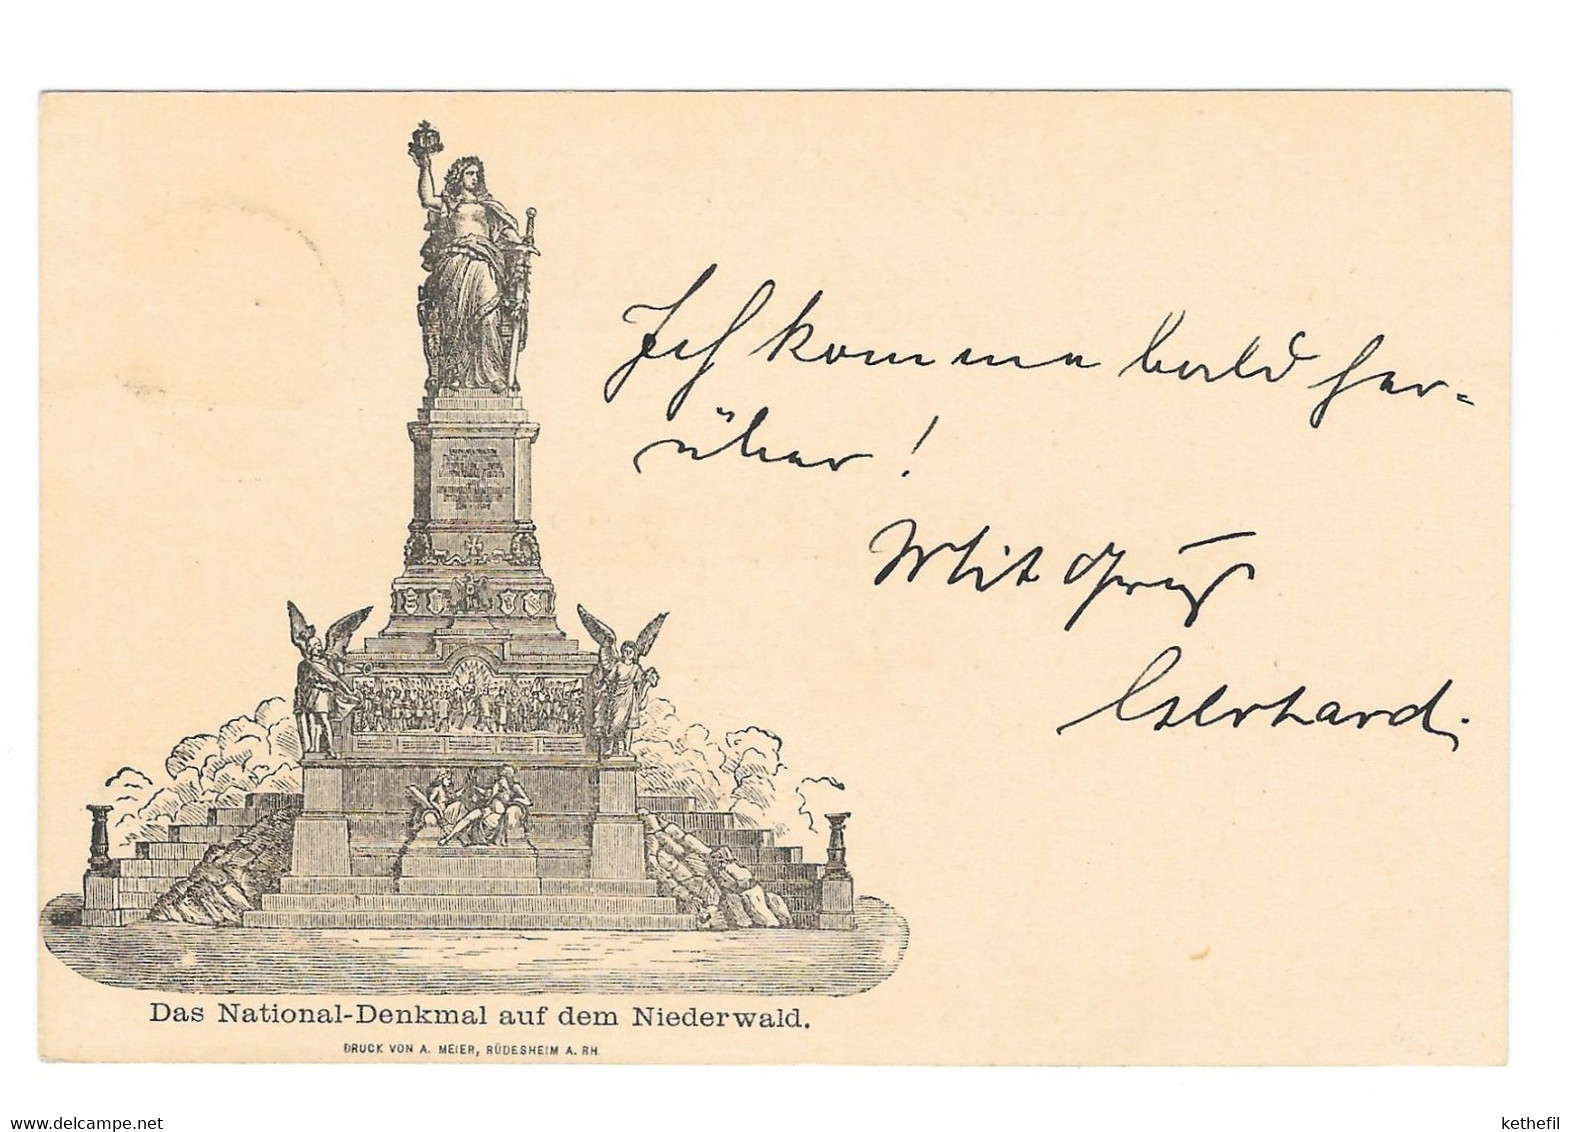 Ich komme bald her-
über!
Mit Gruß
Eberhard.
Das National-Denkmal auf dem Niederwald.
DRUCK VON A. MEIER, RÜDESHEIM A. RH.
www.delcampe.net
kethefil